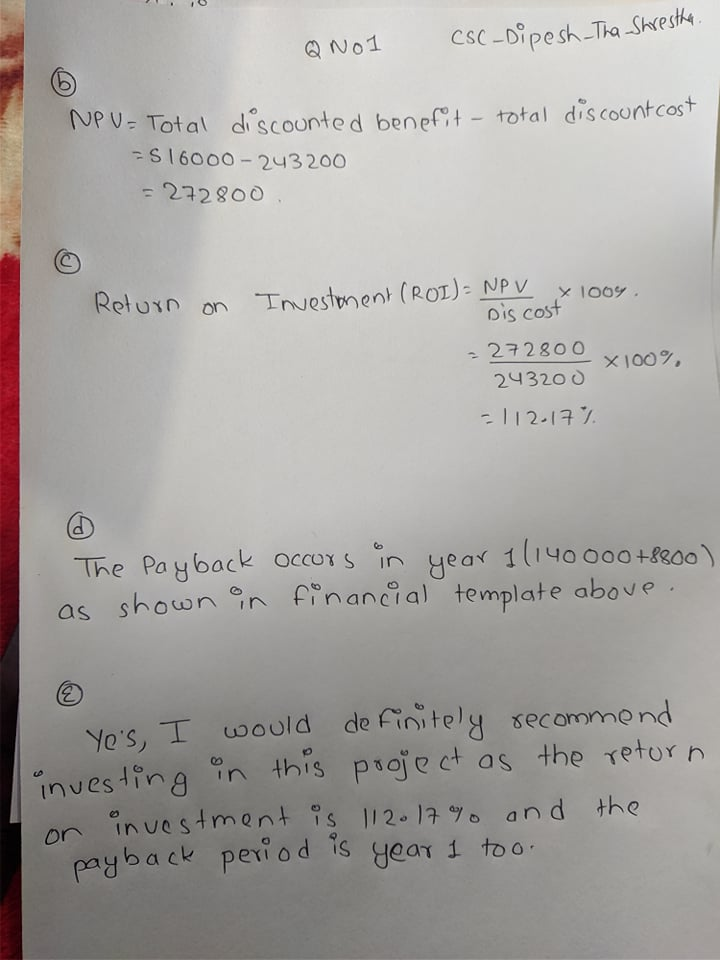 Q No1 CSC-Dipesh-Tha-Shrestha.
b
NPV = Total discounted benefit - total discountcost
= 516000 - 243200
= 272800.
c
Return on Investment (ROI) = NPV / Dis cost × 100%.
= 272800 / 243200 × 100%.
= 112.17%.
d
The Payback occurs in year 1 (140000+8800)
as shown in financial template above.
E
Yes, I would definitely recommend
investing in this project as the return
on investment is 112.17% and the
payback period is year 1 too.